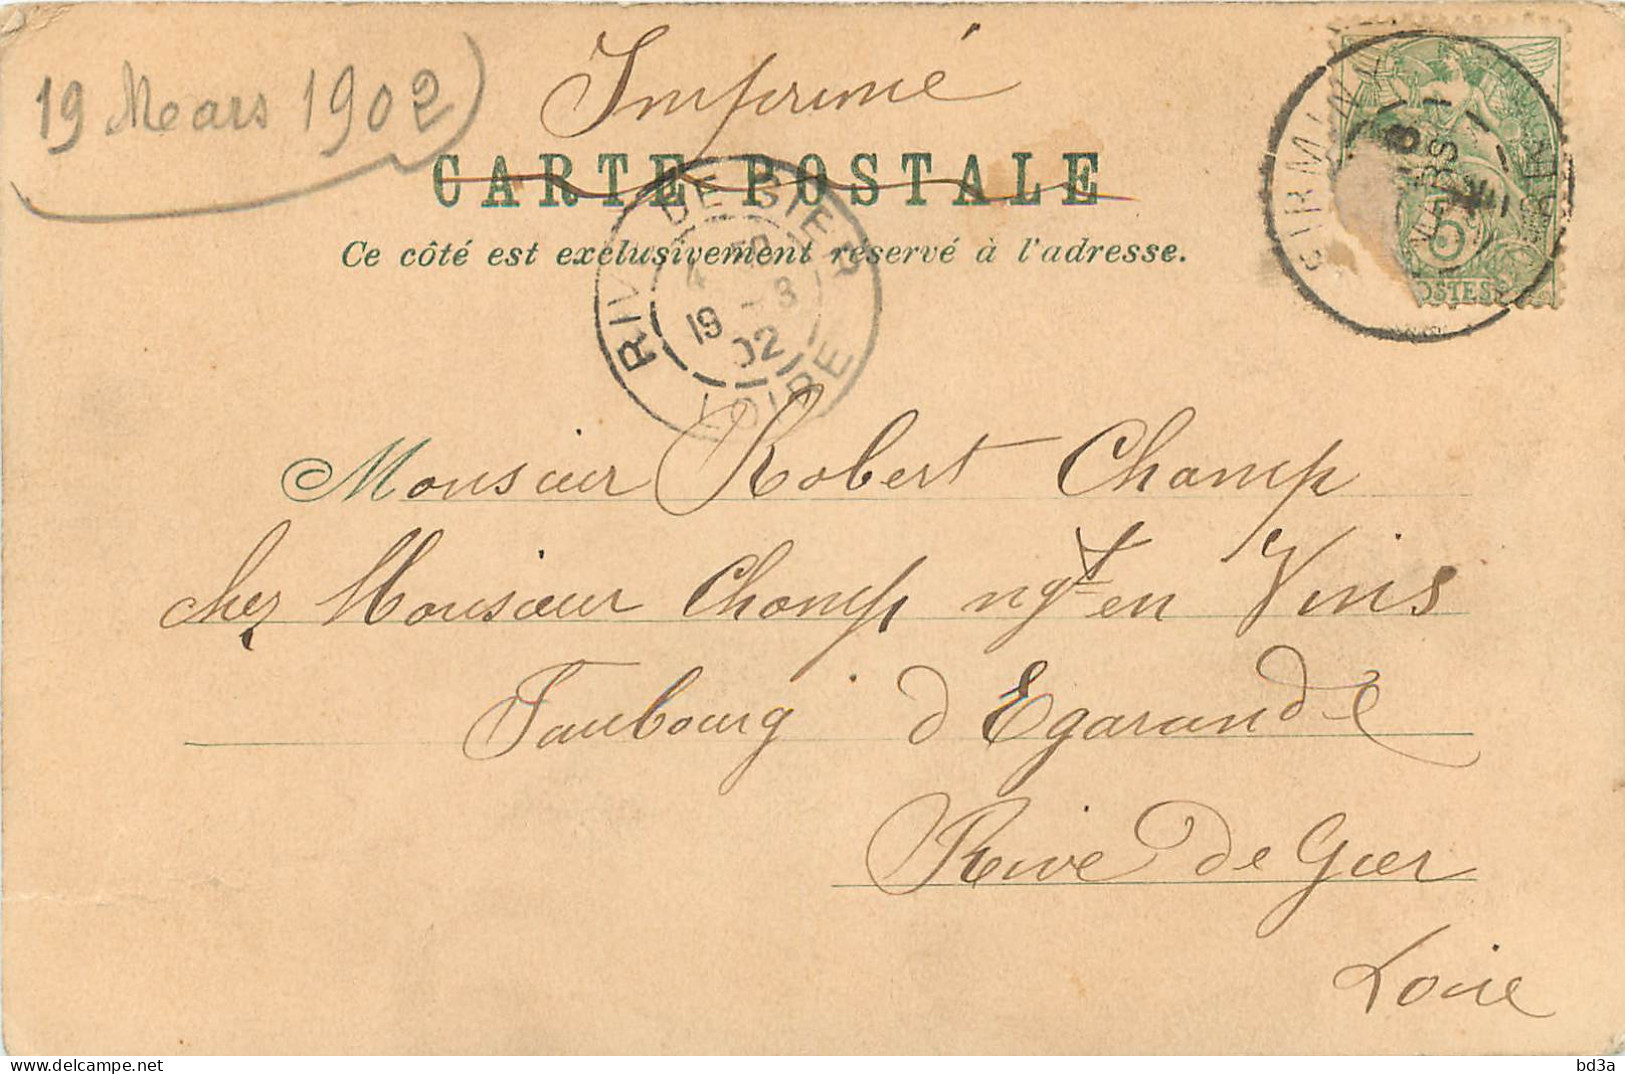 19 Mars 1902
Imprimé
CARTE POSTALE
Ce côté est exclusivement réservé à l'adresse.
RIVE DE GIER
4
19 -3
02
LOIRE
FIRMINY
5
POSTES
Monsieur Robert Champ
chez Monsieur Champ ngt en Vins
Faubourg d'Egarande
Rive de Gier
Loire
delcampe.net
bd3a